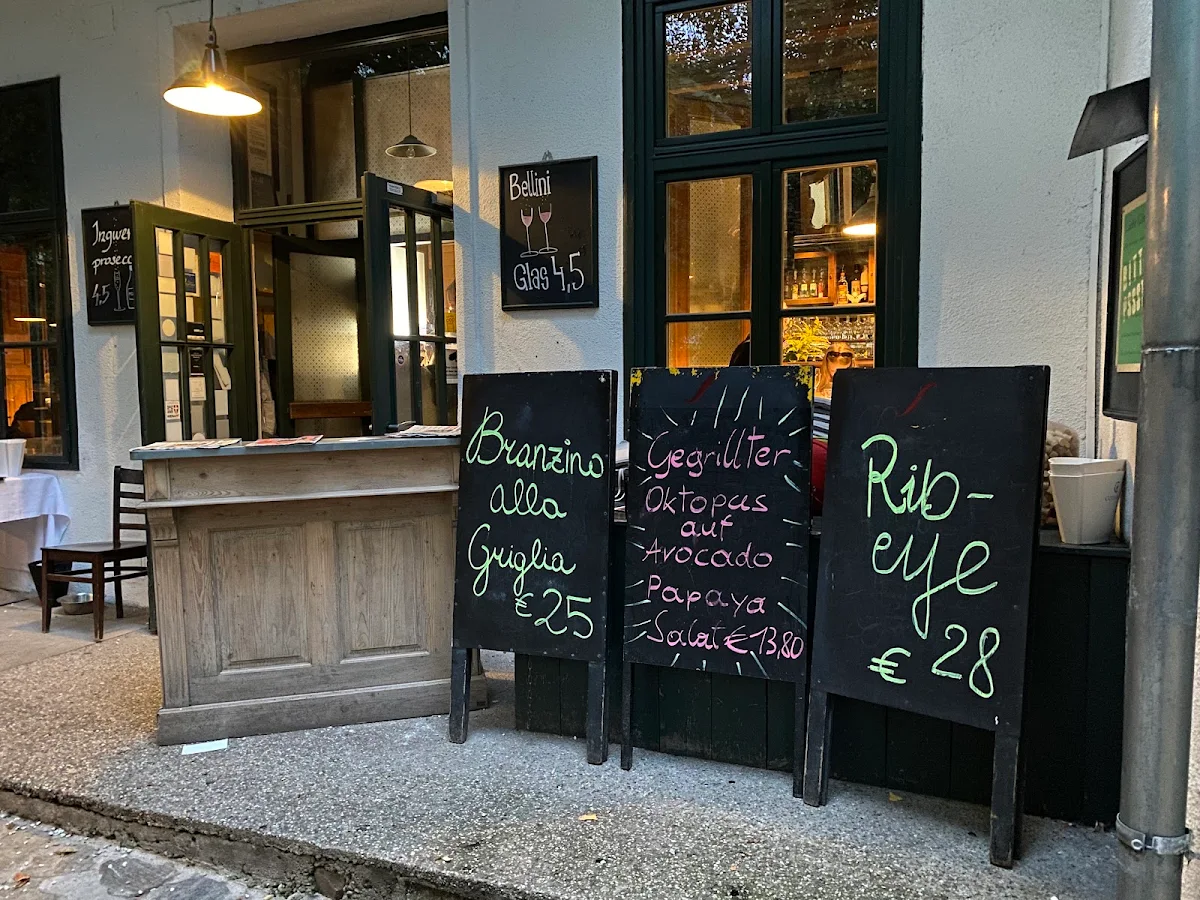 Ingwer
prosecc
4,5
Bellini
Glas 4,5
Branzino
alla
Griglia
€ 25
Gegrillter
Oktopus
auf
Avocado
Papaya
Salat € 13,80
Rib-
eye
€ 28